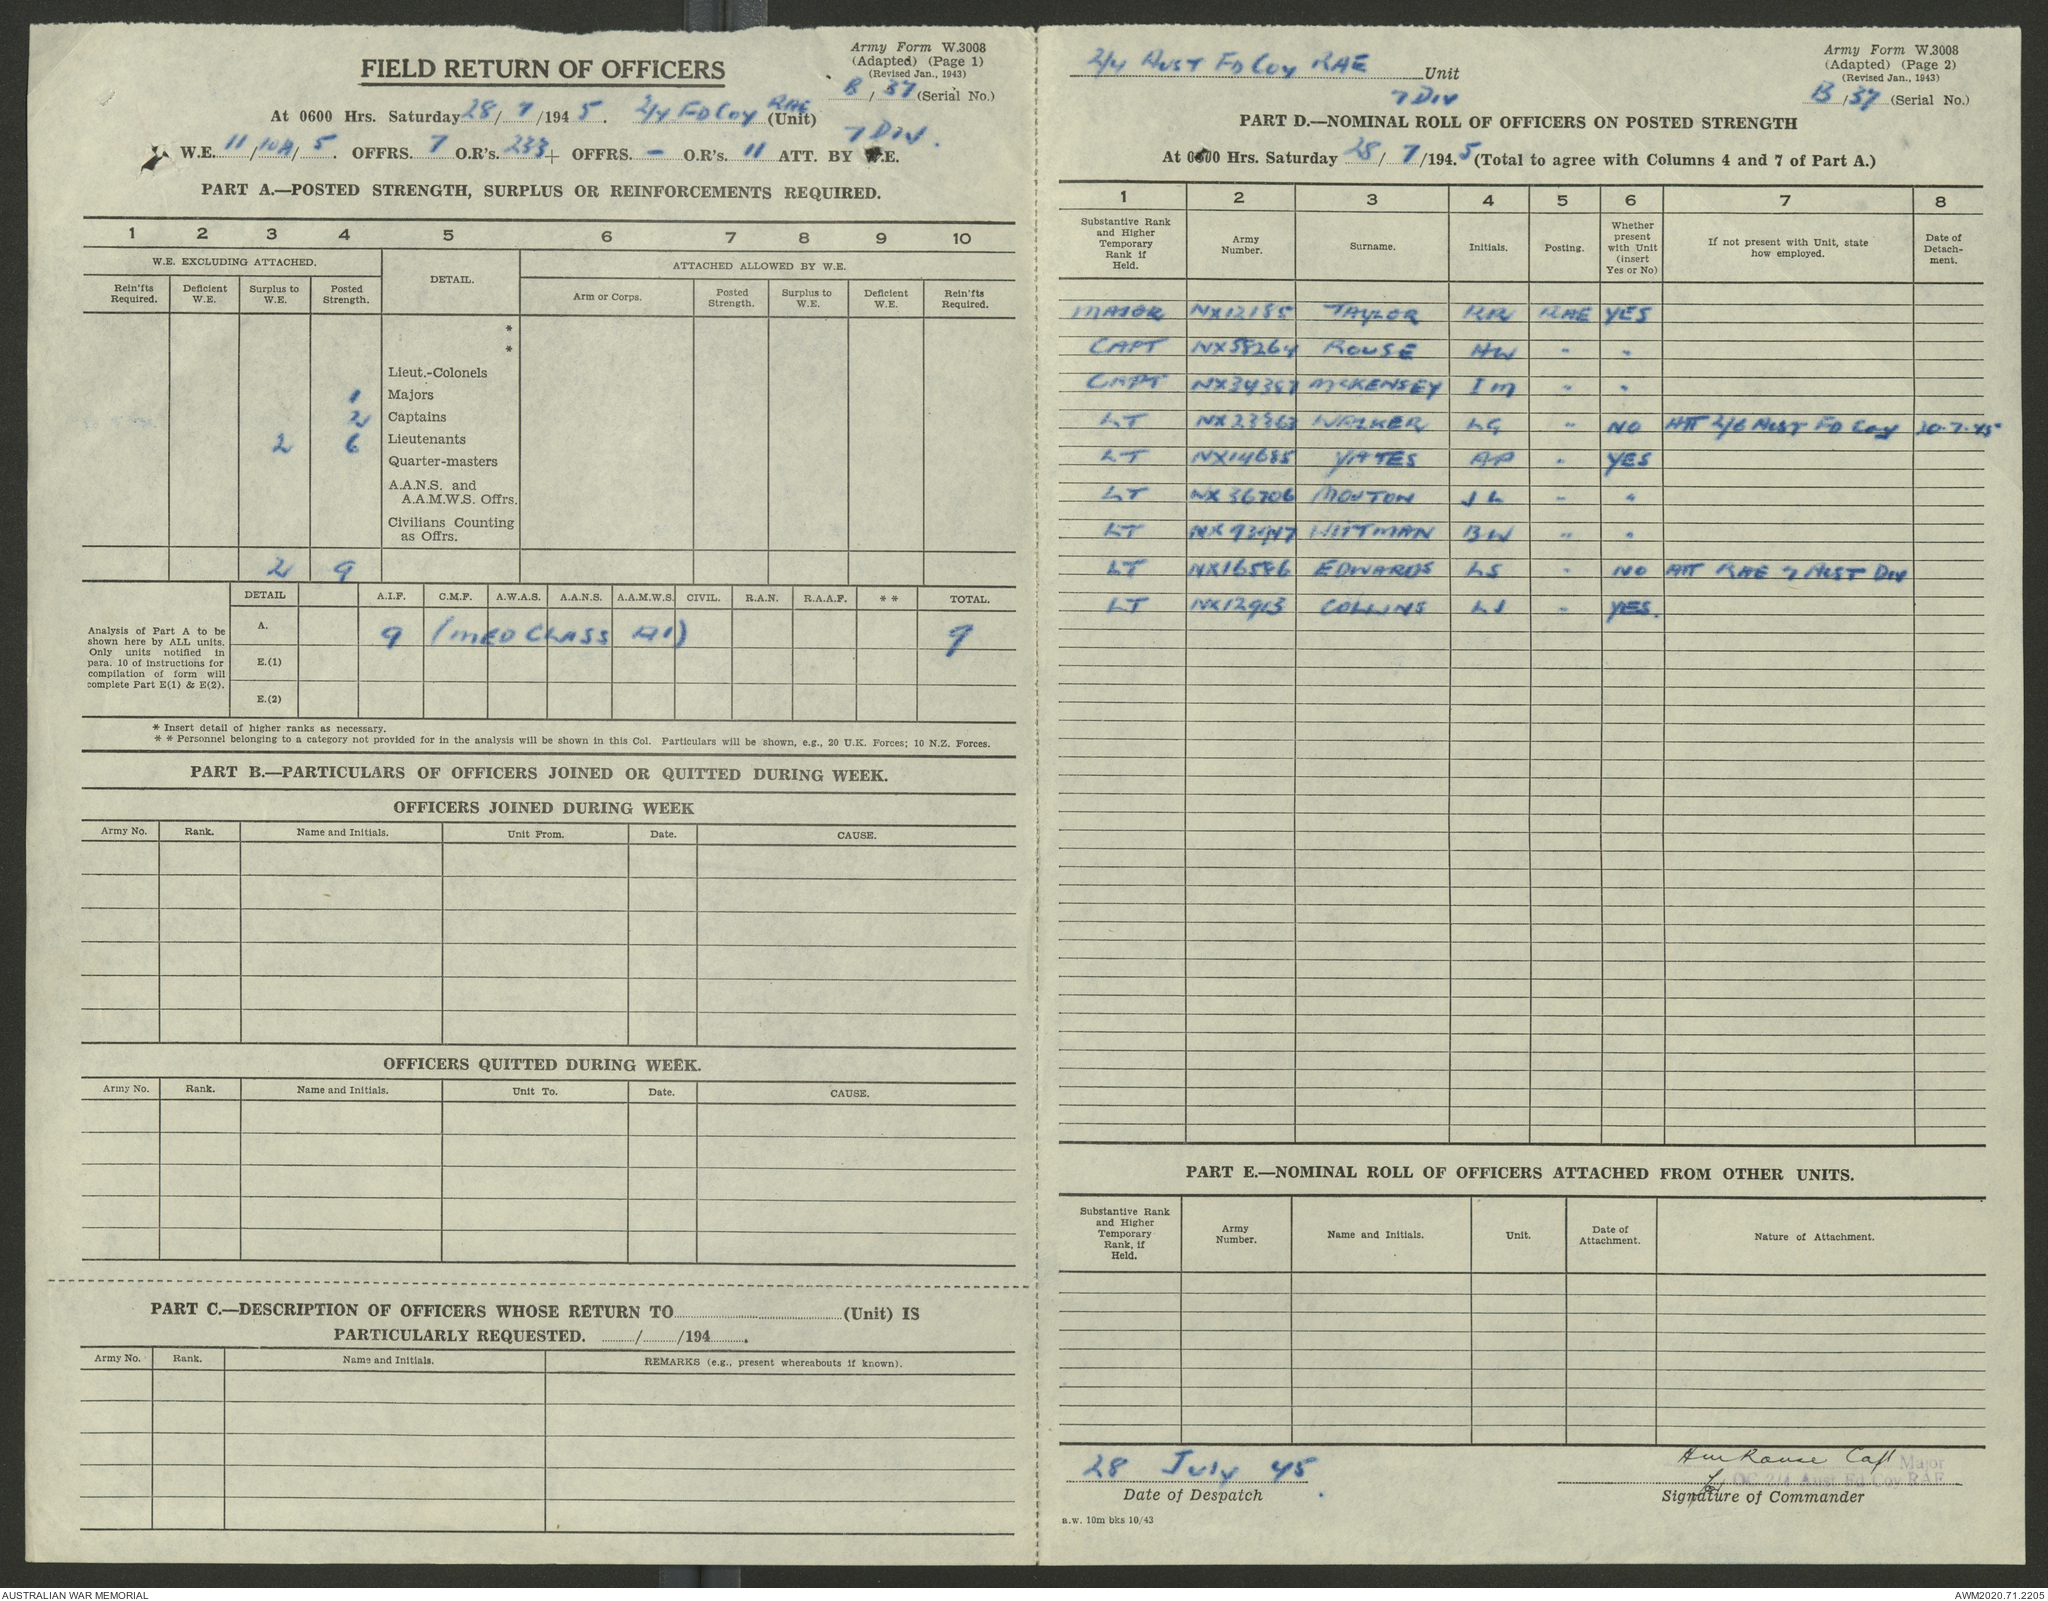 Army Form W.3008
(Adapted) (Page 1)
(Revised Jan., 1943)
B / 37 (Serial No.)
FIELD RETURN OF OFFICERS
At 0600 Hrs. Saturday 28 / 7 /194 5. 2/4 FD COY RAE (Unit)
7 DIV.
W.E. 11 / 10A / 5. OFFRS. 7 O.R's. 233 + OFFRS. – O.R's. 11 ATT. BY W.E.
PART A.—POSTED STRENGTH, SURPLUS OR REINFORCEMENTS REQUIRED.
1 2 3 4 5 6 7 8 9 10
W.E. EXCLUDING ATTACHED. DETAIL. ATTACHED ALLOWED BY W.E.
Rein'fts Required. Deficient W.E. Surplus to W.E. Posted Strength. Arm or Corps. Posted Strength. Surplus to W.E. Deficient W.E. Rein'fts Required.
*
*
Lieut.-Colonels
1 Majors
2 Captains
2 6 Lieutenants
Quarter-masters
A.A.N.S. and
A.A.M.W.S. Offrs.
Civilians Counting
as Offrs.
2 9
DETAIL A.I.F. C.M.F. A.W.A.S. A.A.N.S. A.A.M.W.S. CIVIL. R.A.N. R.A.A.F. * * TOTAL.
Analysis of Part A to be
shown here by ALL units.
Only units notified in
para. 10 of instructions for
compilation of form will
complete Part E(1) & E(2).
A. 9 (MED CLASS A1) 9
E.(1)
E.(2)
* Insert detail of higher ranks as necessary.
* * Personnel belonging to a category not provided for in the analysis will be shown in this Col. Particulars will be shown, e.g., 20 U.K. Forces; 10 N.Z. Forces.
PART B.—PARTICULARS OF OFFICERS JOINED OR QUITTED DURING WEEK.
OFFICERS JOINED DURING WEEK
Army No. Rank. Name and Initials. Unit From. Date. CAUSE.
OFFICERS QUITTED DURING WEEK.
Army No. Rank. Name and Initials. Unit To. Date. CAUSE.
PART C.—DESCRIPTION OF OFFICERS WHOSE RETURN TO (Unit) IS
PARTICULARLY REQUESTED. / /194 .
Army No. Rank. Name and Initials. REMARKS (e.g., present whereabouts if known).
2/4 AUST FD COY RAE Unit
7 DIV
Army Form W.3008
(Adapted) (Page 2)
(Revised Jan., 1943)
B /37 (Serial No.)
PART D.—NOMINAL ROLL OF OFFICERS ON POSTED STRENGTH
At 0600 Hrs. Saturday 28 / 7 /194.5 (Total to agree with Columns 4 and 7 of Part A.)
1 2 3 4 5 6 7 8
Substantive Rank and Higher Temporary Rank if Held. Army Number. Surname. Initials. Posting. Whether present with Unit (insert Yes or No) If not present with Unit, state how employed. Date of Detach-ment.
MAJOR NX12185 TAYLOR RR RAE YES
CAPT NX58264 ROUSE HW " "
CAPT NX34387 McKENSEY IM " "
LT NX23363 WALKER LG " NO ATT 2/6 AUST FD COY 20.7.45
LT NX14685 YATES AP " YES
LT NX36706 MOUTON JL " "
LT WITTMAN BW " "
LT NX16586 EDWARDS LS " NO ATT RAE 7 AUST DIV
LT NX12913 COLLINS LJ " YES.
PART E.—NOMINAL ROLL OF OFFICERS ATTACHED FROM OTHER UNITS.
Substantive Rank and Higher Temporary Rank, if Held. Army Number. Name and Initials. Unit. Date of Attachment. Nature of Attachment.
28 July 45
Date of Despatch
HW Rouse Capt Major
for OC 2/4 Aust Fd Coy RAE
Signature of Commander
a.w. 10m bks 10/43
AUSTRALIAN WAR MEMORIAL
AWM2020.71.2205